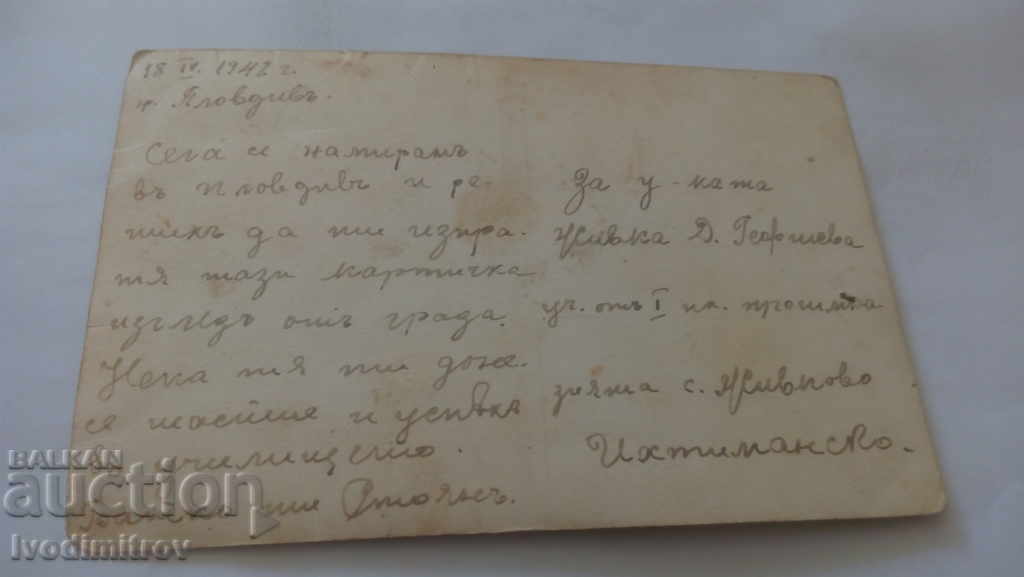 18 IV. 1942 г.
гр. Пловдивъ.
Сега се намирамъ
въ Пловдивъ и ре-
шихъ да ти изпра-
тя тази картичка
изгледъ отъ града.
Нека тя ти доне-
се щастие и успѣхъ
въ училището.
Батко ти Стоянъ.
За у-ката
Живка Д. Георгиева
уч. отъ I кл. прогимна
зията с. Живково
Ихтиманско.
BALKAN
auction
Ivodimitrov